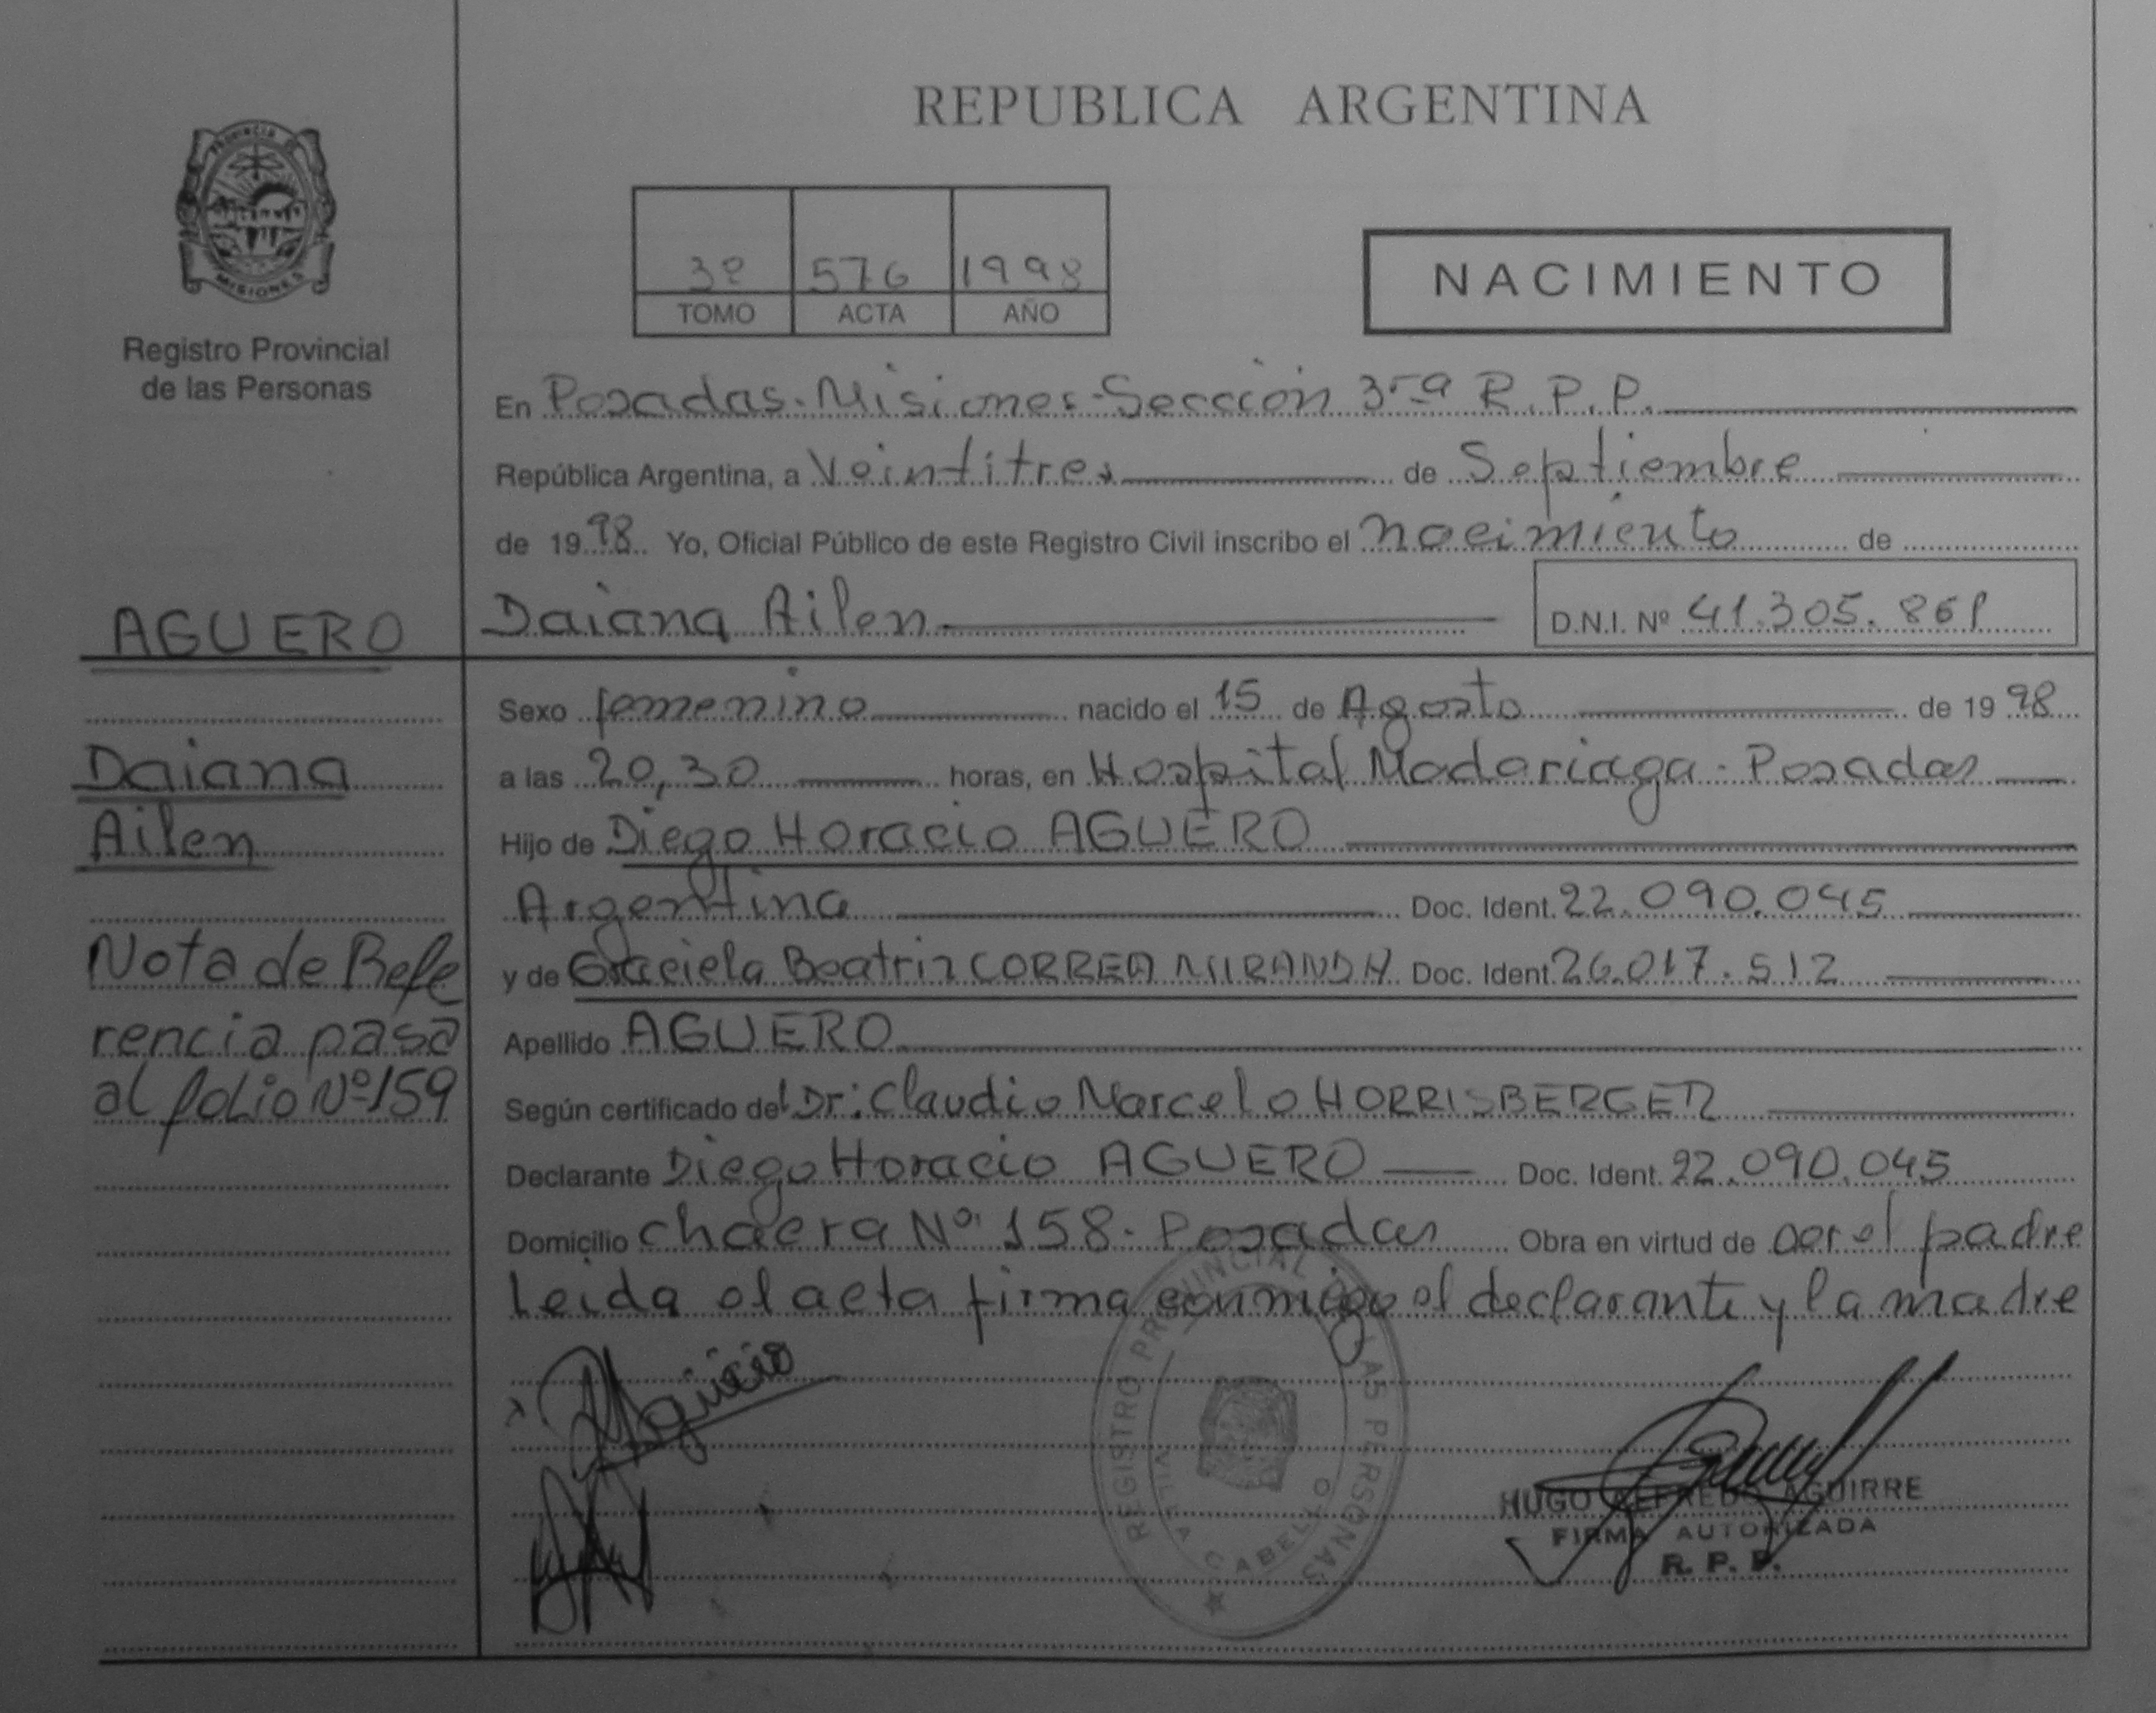 REPUBLICA ARGENTINA
PROVINCIA DE
MISIONES
Registro Provincial
de las Personas
3º 576 1998
TOMO ACTA AÑO
NACIMIENTO
En Posadas-Misiones-Sección 3ra R.P.P.
República Argentina, a Veintitres de Septiembre
de 1998 Yo, Oficial Público de este Registro Civil inscribo el nacimiento de
Daiana Ailen D.N.I. Nº 41.305.861
AGUERO
Daiana
Ailen
Nota de Refe
rencia pasa
al folio Nº159
Sexo femenino nacido el 15 de Agosto de 1998
a las 20,30 horas, en Hospital Madariaga-Posadas
Hijo de Diego Horacio AGUERO
Argentina Doc. Ident. 22.090.045
y de Graciela Beatriz CORREA MIRANDA Doc. Ident. 26.017.512
Apellido AGUERO
Según certificado del Dr: Claudio Marcelo HORRISBERGER
Declarante Diego Horacio AGUERO Doc. Ident. 22.090.045
Domicilio chacra Nº 158-Posadas Obra en virtud de ser el padre
Leida el acta firma conmigo el declarante y la madre
REGISTRO PROVINCIAL DE LAS PERSONAS
VILLA CABELLO
HUGO ALFREDO AGUIRRE
FIRMA AUTORIZADA
R. P. P.